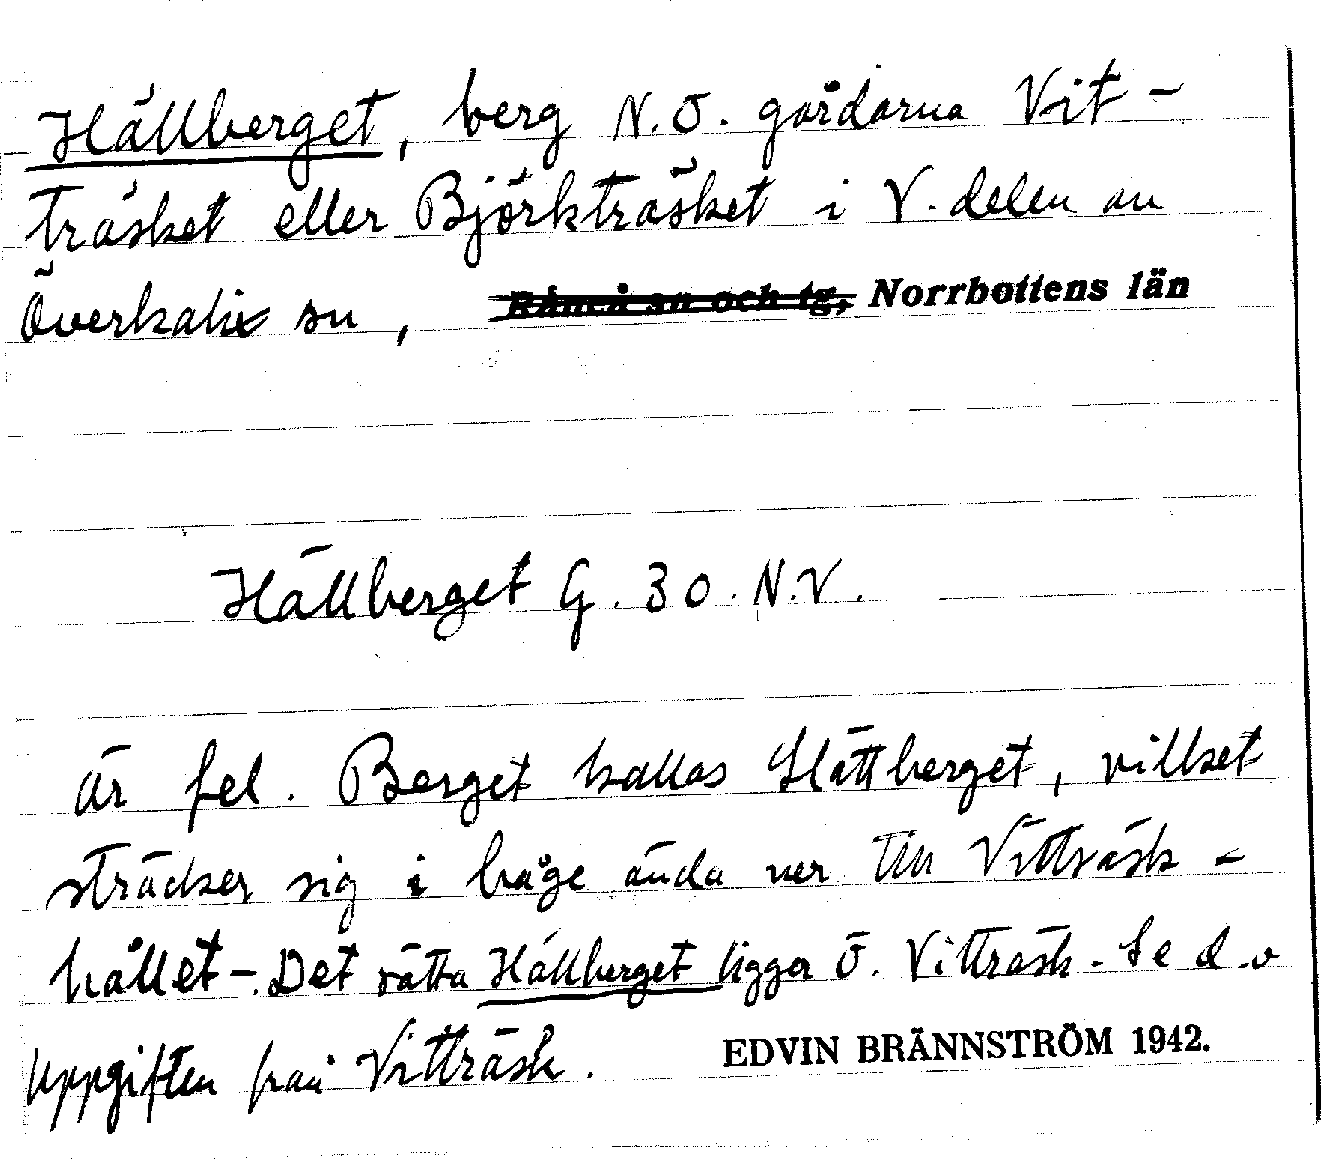 Hällberget, berg N.Ö. gårdarna Vit-
träsket eller Björkträsket i V. delen av
Överkalix sn, Råneå sn och tg, Norrbottens län
Hällberget G. 30. N.V.
är fel. Berget kallas Slättberget, vilket
sträcker sig i båge ända ner till Vitträsk-
hållet-. Det rätta Hällberget ligger Ö. Vitträsk. Se d.o
uppgiften från Vitträsk. EDVIN BRÄNNSTRÖM 1942.